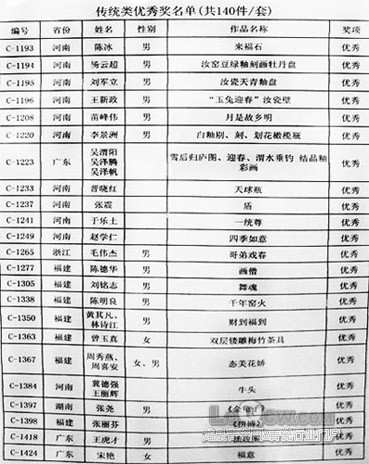 传统类优秀奖名单(共140件/套)
编号 省份 姓名 性别 作品名称 奖项
C-1193 河南 陈冰 男 来福石 优秀
C-1194 河南 杨云超 男 汝窑豆绿釉刻画牡丹盘 优秀
C-1195 河南 刘军立 男 汝瓷天青釉盘 优秀
C-1196 河南 王新政 男 “玉兔迎春”汝瓷壁 优秀
C-1208 河南 苗峰伟 男 月是故乡明 优秀
C-1220 河南 李景洲 男 白釉剔、刻、划花橄榄瓶 优秀
C-1223 广东 吴渭阳 吴泽腾 吴泽帆 雪后归庐图、迎春、渭水垂钓 结晶釉彩画 优秀
C-1233 河南 晋晓红 天球瓶 优秀
C-1237 河南 张震 盾 优秀
C-1241 河南 于乐土 一统尊 优秀
C-1249 河南 赵学仁 四季如意 优秀
C-1265 浙江 毛伟杰 男 哥弟戏春 优秀
C-1277 福建 陈德华 男 画僧 优秀
C-1305 福建 刘铭志 男 舞魂 优秀
C-1338 福建 陈明良 男 千年窑火 优秀
C-1350 福建 黄其凡、林诗江 男 财到福到 优秀
C-1363 福建 曾玉真 女 双层镂雕梅竹茶具 优秀
C-1367 福建 周秀燕、周喜安 女、男 态美花娇 优秀
C-1384 河南 冀德强 王丽辉 牛头 优秀
C-1397 湖南 张尧 男 优秀
C-1398 福建 张丽芬 《拼搏》 优秀
C-1418 广东 王虎才 男 优秀
C-1424 广东 宋艳 女 福意 优秀